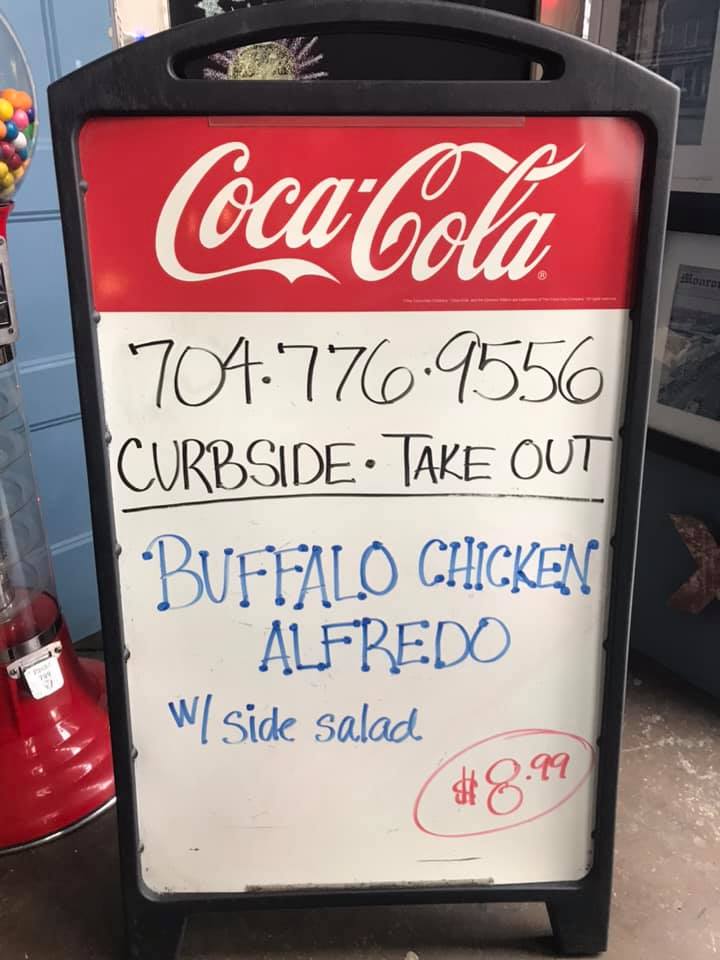 Coca-Cola
704.776.9556
CURBSIDE • TAKE OUT
BUFFALO CHICKEN
ALFREDO
w/ side salad
$8.99